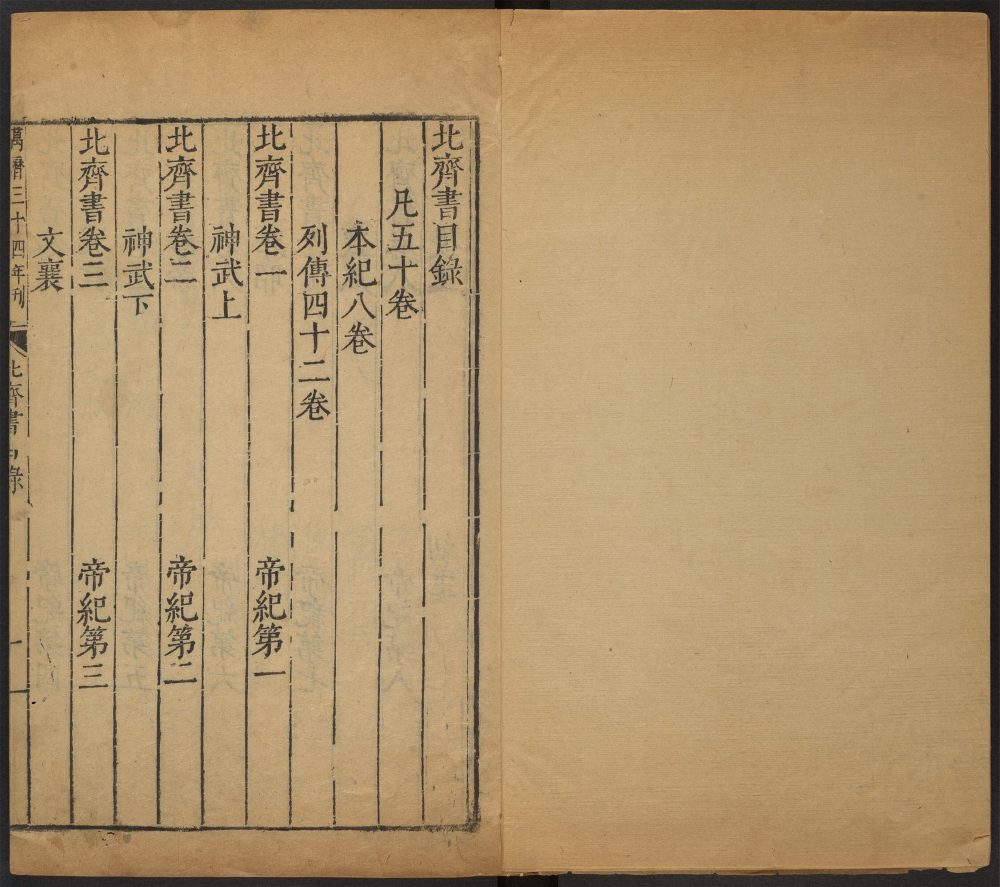 北齊書目錄
凡五十卷
本紀八卷
列傳四十二卷
北齊書卷一 帝紀第一
神武上
北齊書卷二 帝紀第二
神武下
北齊書卷三 帝紀第三
文襄
萬曆三十四年刊
北齊書目錄
一